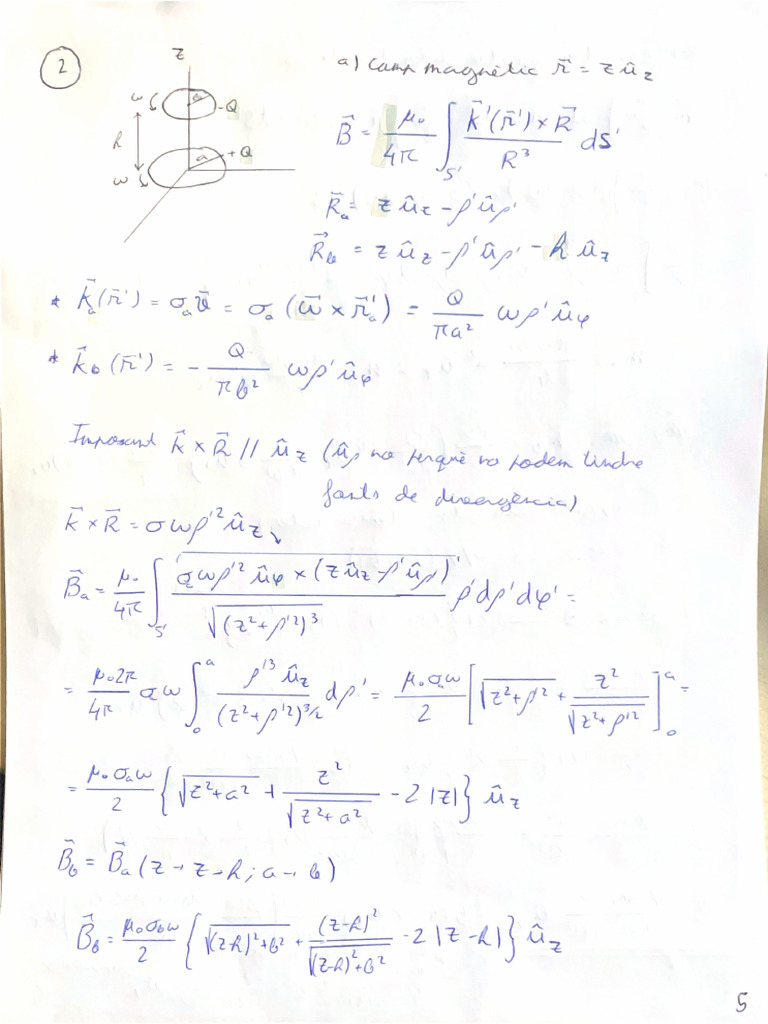 2
z
a) Camp magnètic r⃗ = z û_z
ω b -Q
h
ω a +Q
B⃗ = μ₀/4π ∫_S' K⃗'(r⃗')×R⃗ / R³ dS'
R⃗_a = z û_z - ρ' û_ρ'
R⃗_b = z û_z - ρ' û_ρ' - h û_z
* K⃗_a(r⃗') = σ_a v⃗ = σ_a (ω⃗ × r⃗'_a) = Q/πa² ωρ' û_φ
* K⃗_b(r⃗') = - Q/πb² ωρ' û_φ
Imposant K⃗ × R⃗ // û_z (û_ρ no perquè no podem tindre
fonts de divergència)
K⃗ × R⃗ = σωρ'² û_z
B⃗_a = μ₀/4π ∫_S' σ_a ωρ'² û_φ × (z û_z - ρ' û_ρ) / √(z²+ρ'²)³ ρ'dρ'dφ' =
= μ₀2π/4π σ_a ω ∫₀^a ρ'³ û_z / (z²+ρ'²)^3/2 dρ' = μ₀σ_aω/2 [√(z²+ρ'²) + z²/√(z²+ρ'²)]₀^a =
= μ₀σ_aω/2 {√(z²+a²) + z²/√(z²+a²) - 2|z|} û_z
B⃗_b = B⃗_a (z → z-h; a → b)
B⃗_b = μ₀σ_bω/2 {√((z-h)²+b²) + (z-h)²/√((z-h)²+b²) - 2|z-h|} û_z
5